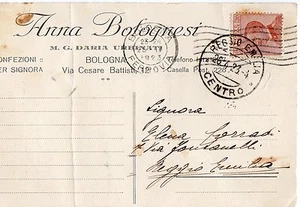 Anna Bolognesi
M. G. DARIA URBINATI
CONFEZIONI
PER SIGNORA
BOLOGNA
Via Cesare Battisti, 12
Telefono
Casella Post. 220
REGGIO EMILIA
CENTRO
Signora
Elena Corradi
Via Fontanelli
Reggio Emilia